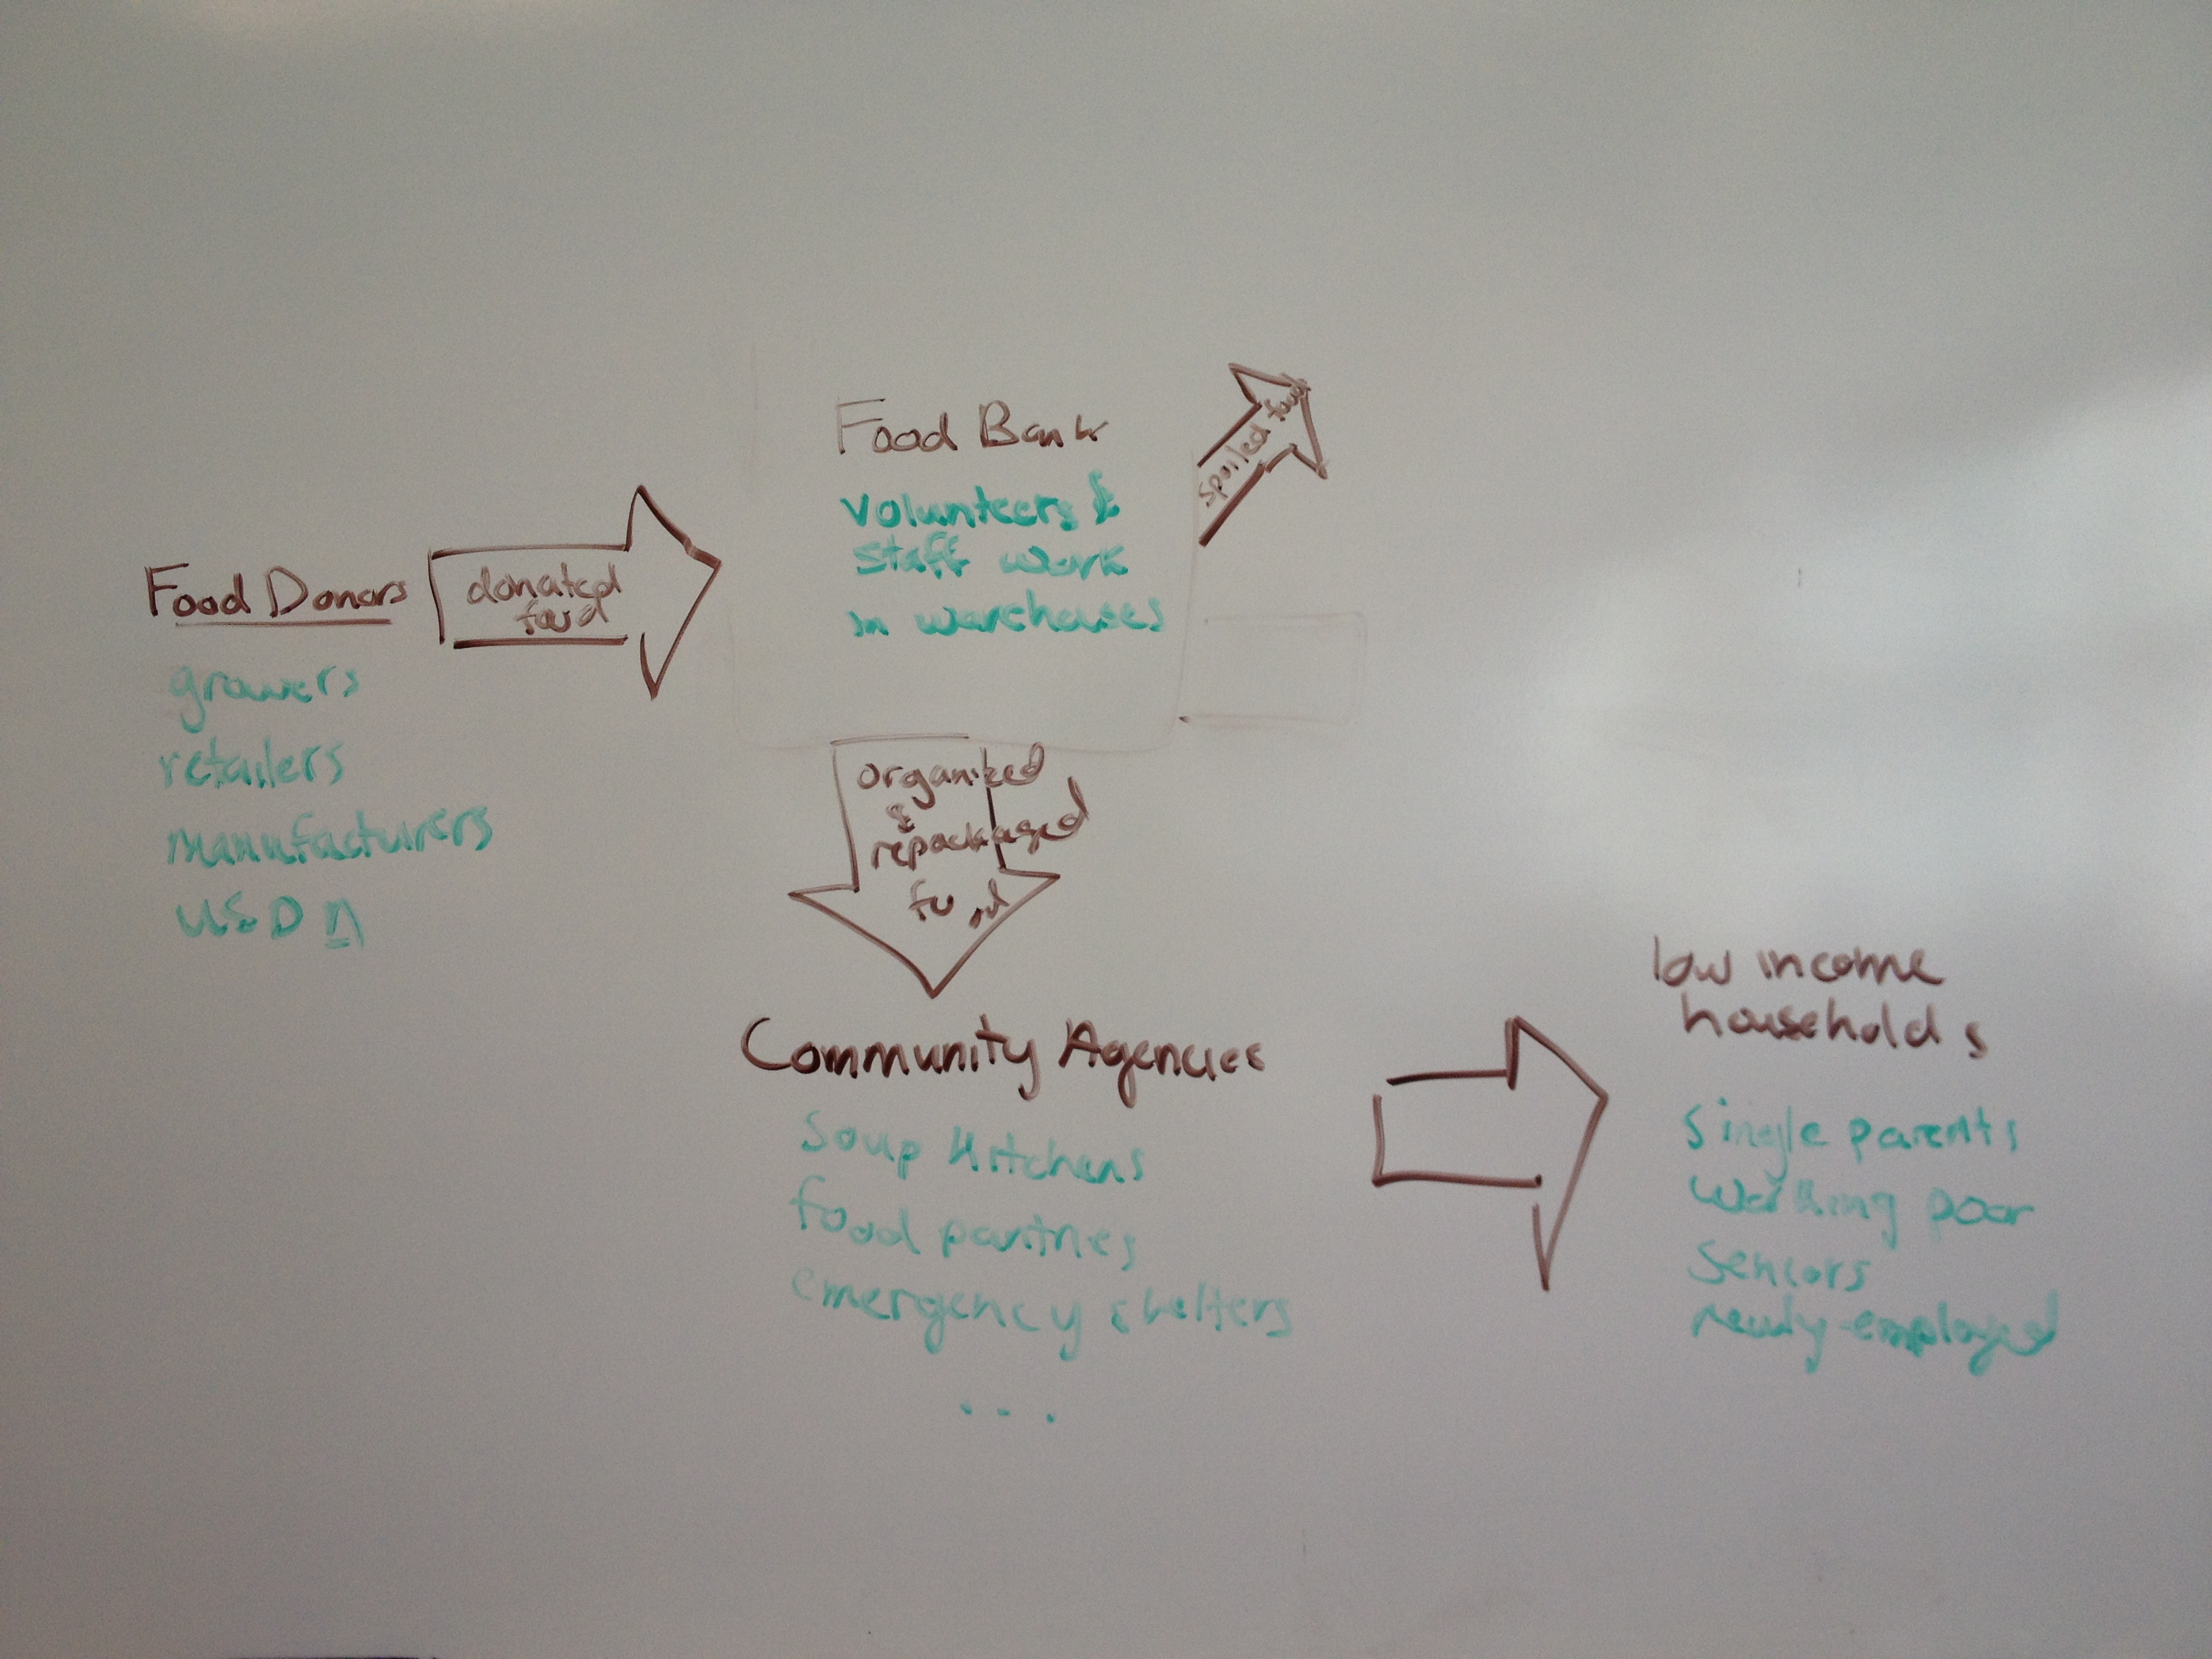 Food Donors
growers
retailers
manufacturers
USDA
donated
food
Food Bank
Volunteers &
staff work
in warehouses
spoiled food
organized
&
repackaged
food
Community Agencies
Soup Kitchens
food pantries
emergency shelters
...
low income
households
single parents
working poor
seniors
newly employed